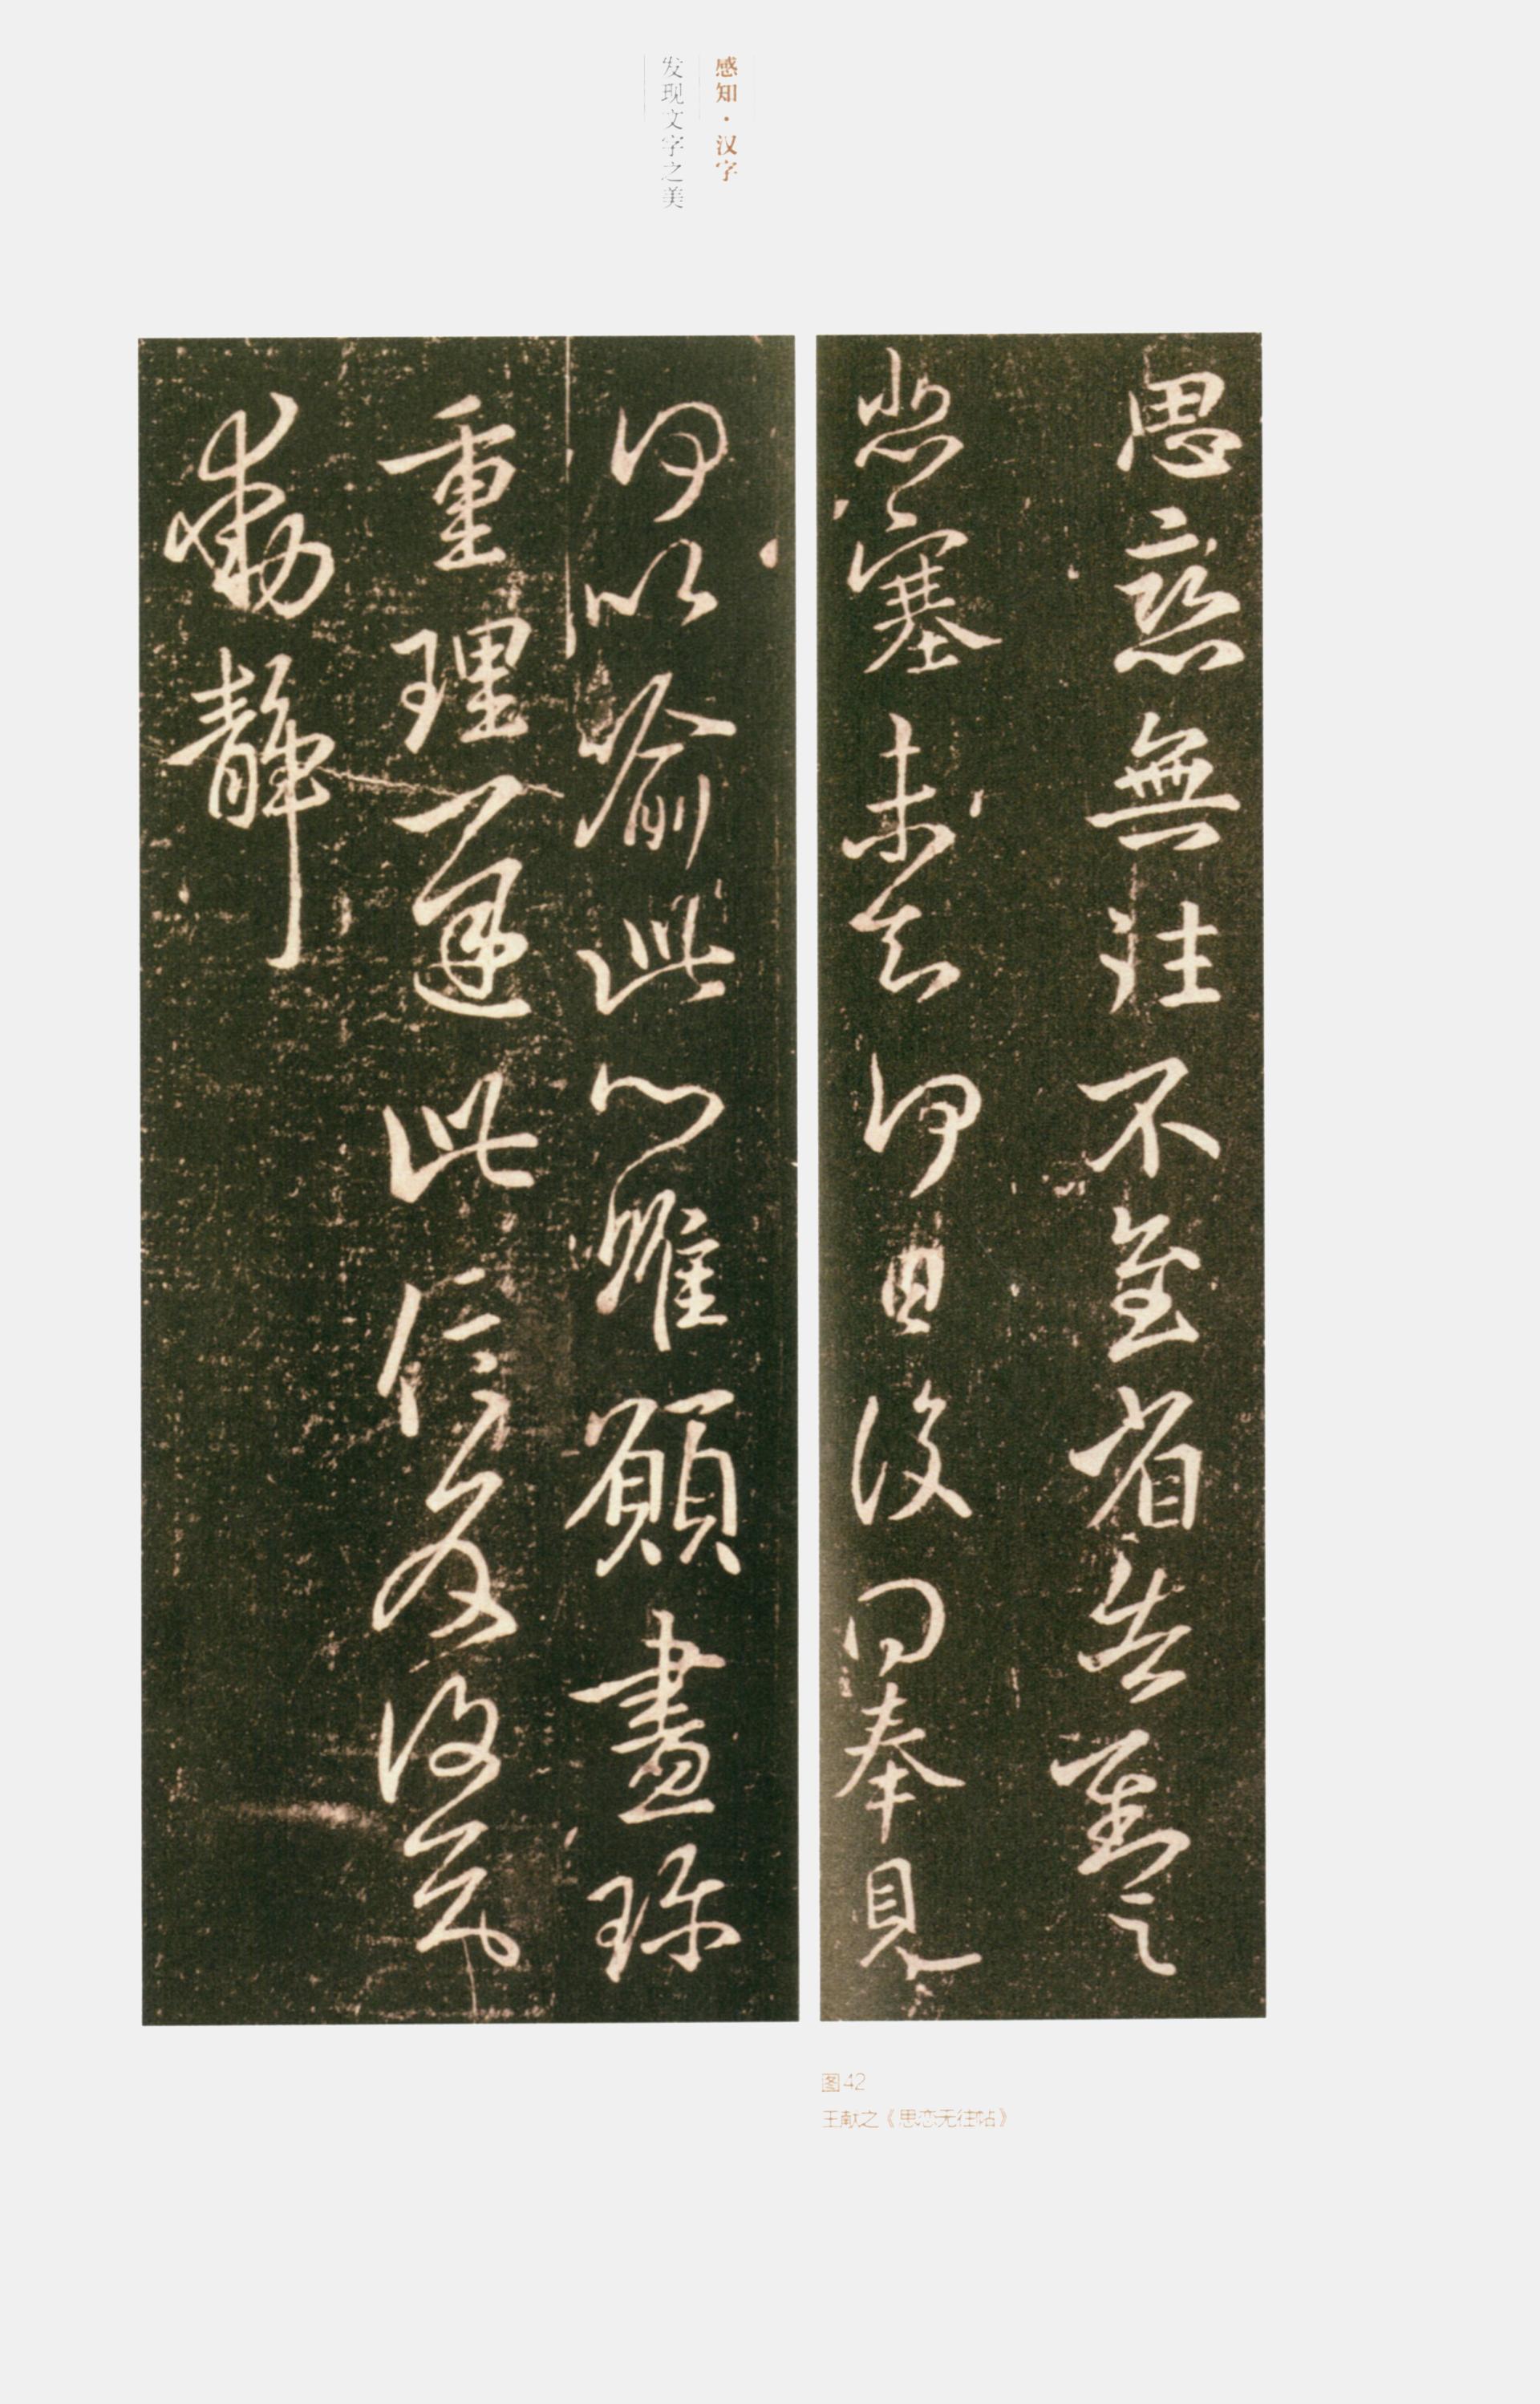 感知·汉字
发现文字之美
思戀無往不至省告對之
悲塞未知何日復奉見
何以喻此心惟願盡珍
重理遲此信反復知
動靜
图42
王献之《思恋无往帖》